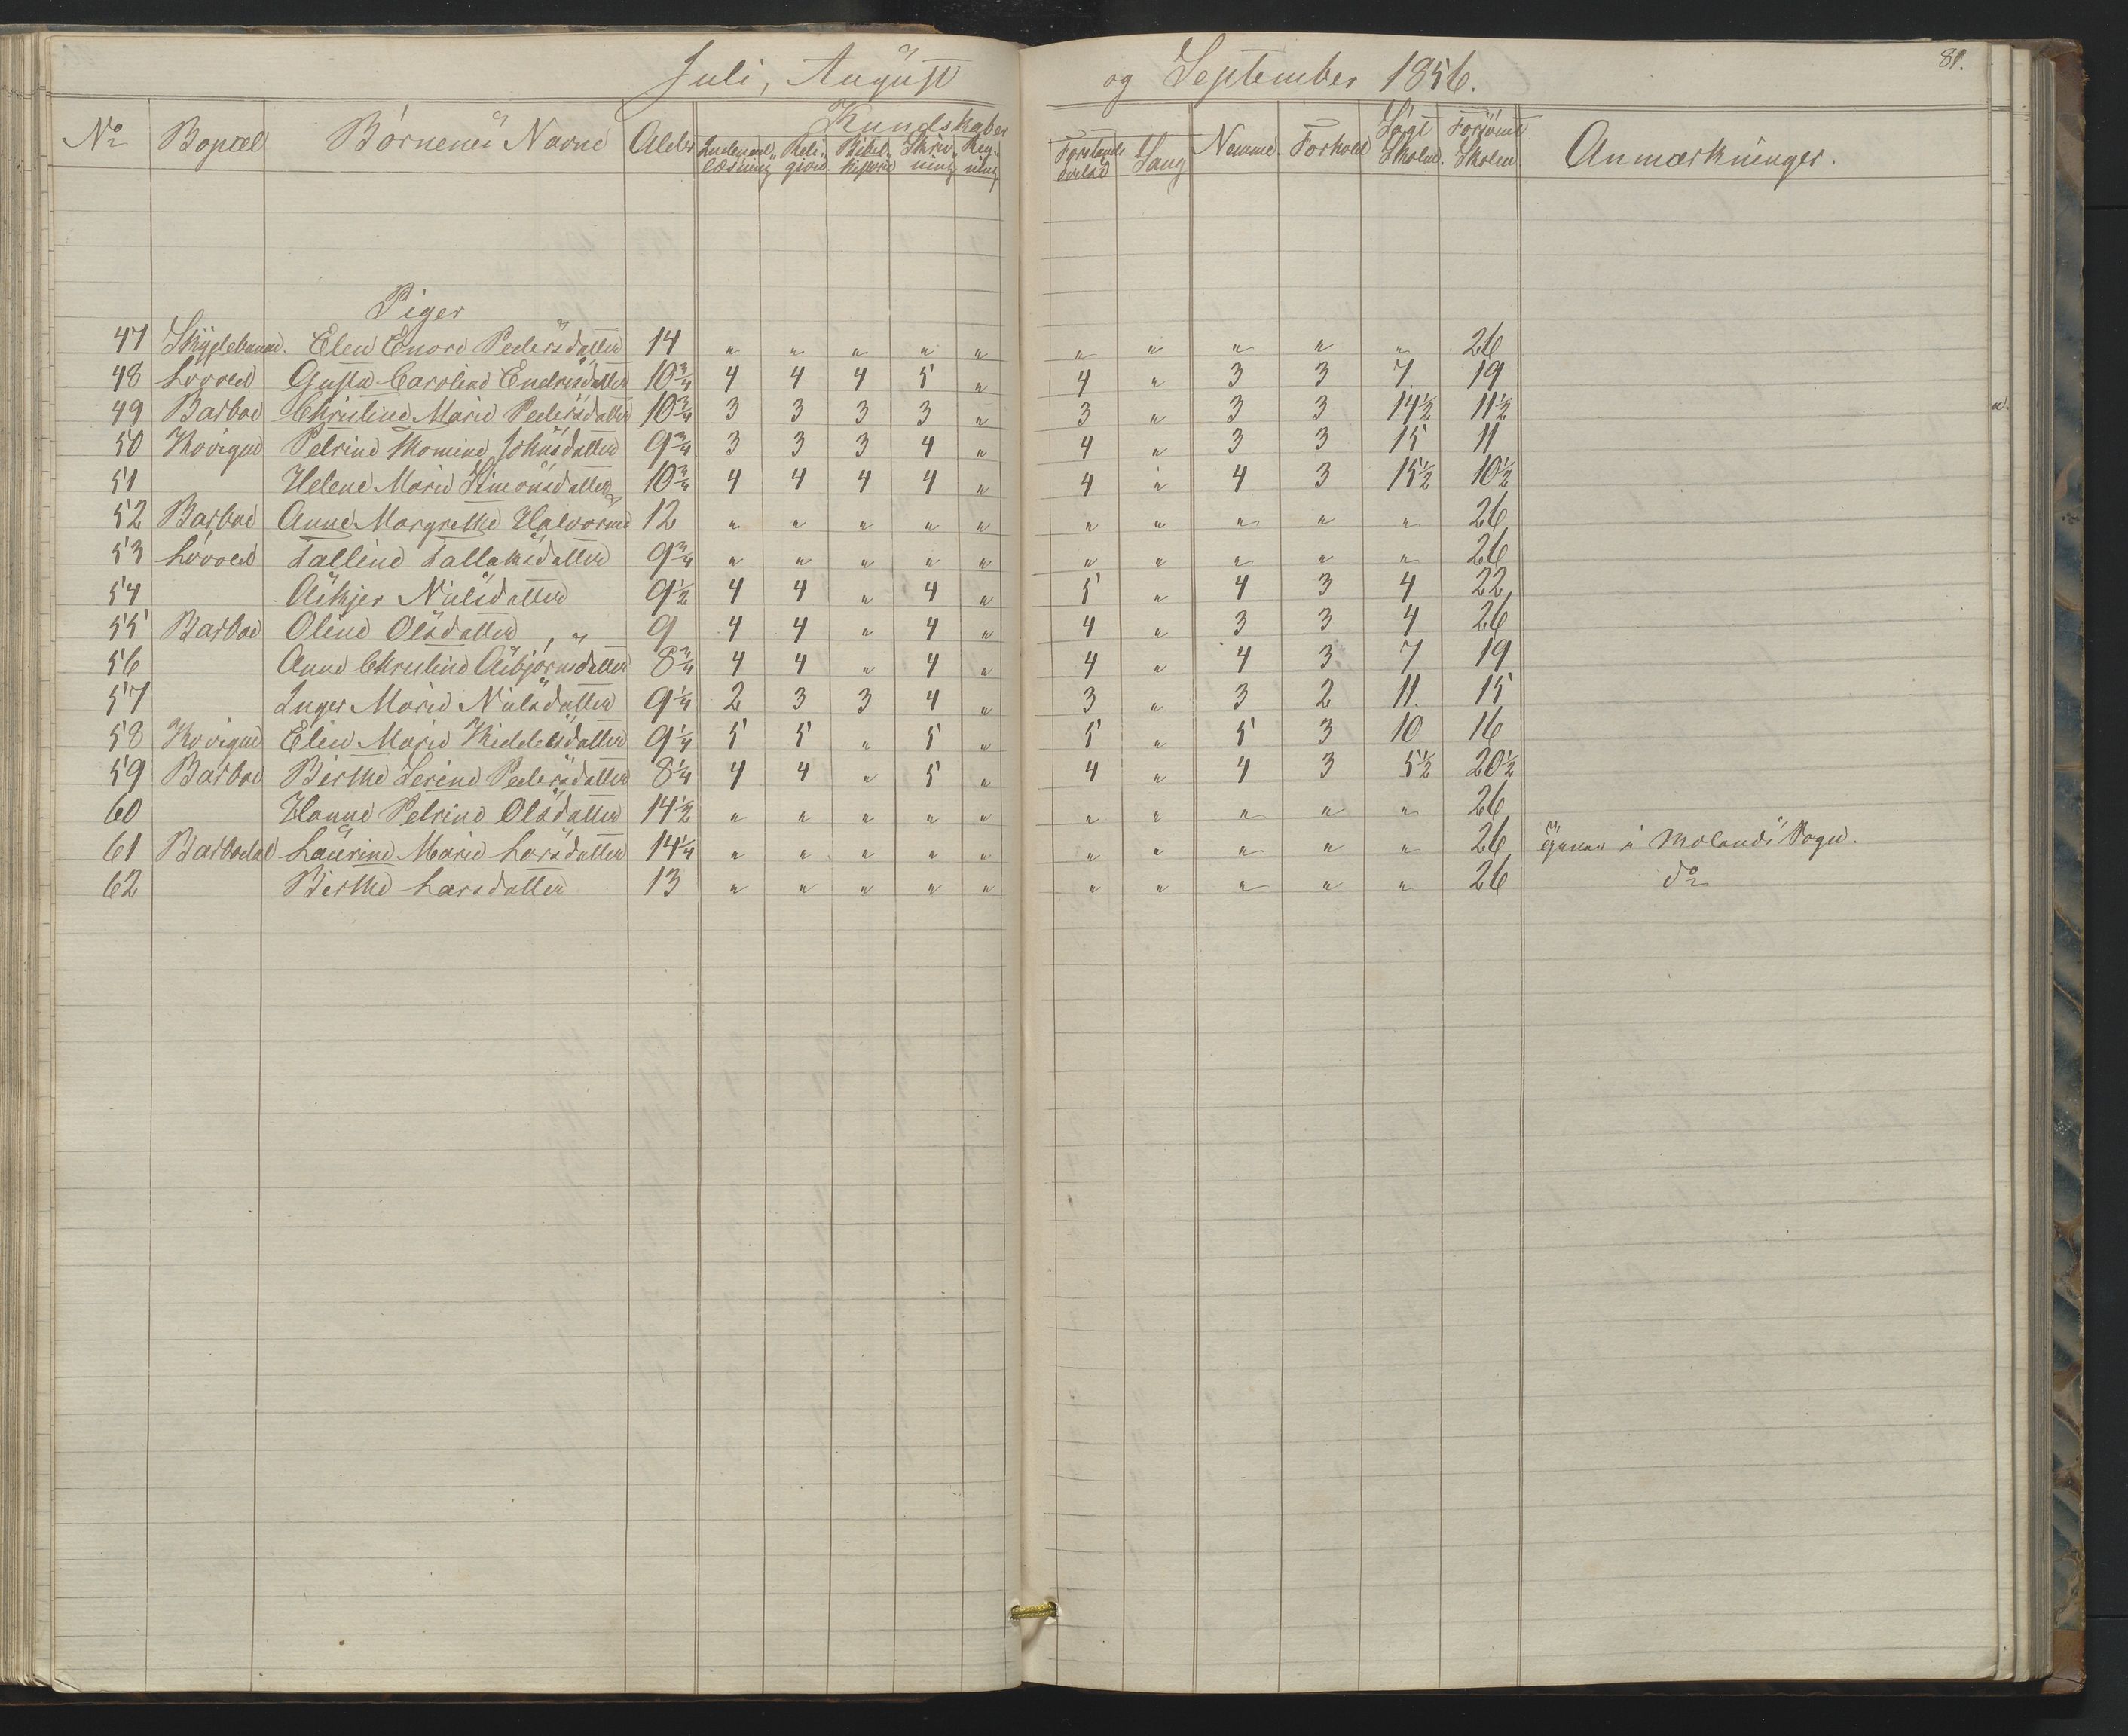 Juli, August og September 1856. 81.
No Bopæl Børnenes Navne Alder Kundskaber Søgt Skolen. Forsømt Skolen Anmærkninger.
Indenadlæsning Religion Bibelhistorie Skrivning Regning Forstandsøvelse Sang Nemme. Forhold
Piger
47 Elen Enore Pedersdatter 14 " " " " " " " " " " 26
48 Løvold Gusta Caroline Endresdatter 10 3/4 4 4 4 5 " 4 " 3 3 7 19
49 Barboe Christine Marie Pedersdatter 10 3/4 3 3 3 3 " 3 " 3 3 14 1/2 11 1/2
50 Petrine Thomine Johnsdatter 9 3/4 3 3 3 4 " 4 " 3 3 15 11
51 Helene Marie Simonsdatter 10 3/4 4 4 4 4 " 4 " 4 3 15 1/2 10 1/2
52 Barboe Anne Margrethe Halvorsd 12 " " " " " " " " " " 26
53 Løvold Talline Tallaksdatter 9 3/4 " " " " " " " " " " 26
54 Åskjer Nielsdatter 9 1/2 4 4 " 4 " 5 " 4 3 4 22
55 Barboe Oline Olsdatter, " 9 4 4 " 4 " 4 " 3 3 4 26
56 Anne Christine Åsbjørnsdatter 8 3/4 4 4 " 4 " 4 " 4 3 7 19
57 Inger Marie Nielsdatter 9 1/4 2 3 3 4 " 3 " 3 2 11. 15
58 Elen Marie Kiddelsdatter 9 1/4 5 5 " 5 " 5 " 5 3 10 16
59 Barboe Birthe Serine Pedersdatter 8 1/4 4 4 " 5 " 4 " 4 3 5 1/2 20 1/2
60 Hanne Petrine Olsdatter 14 1/2 " " " " " " " " " " 26
61 Barbodal Laurine Marie Larsdatter 14 1/4 " " " " " " " " " " 26 i Molands Sogn.
62 Birthe Larsdatter 13 " " " " " " " " " " 26 do